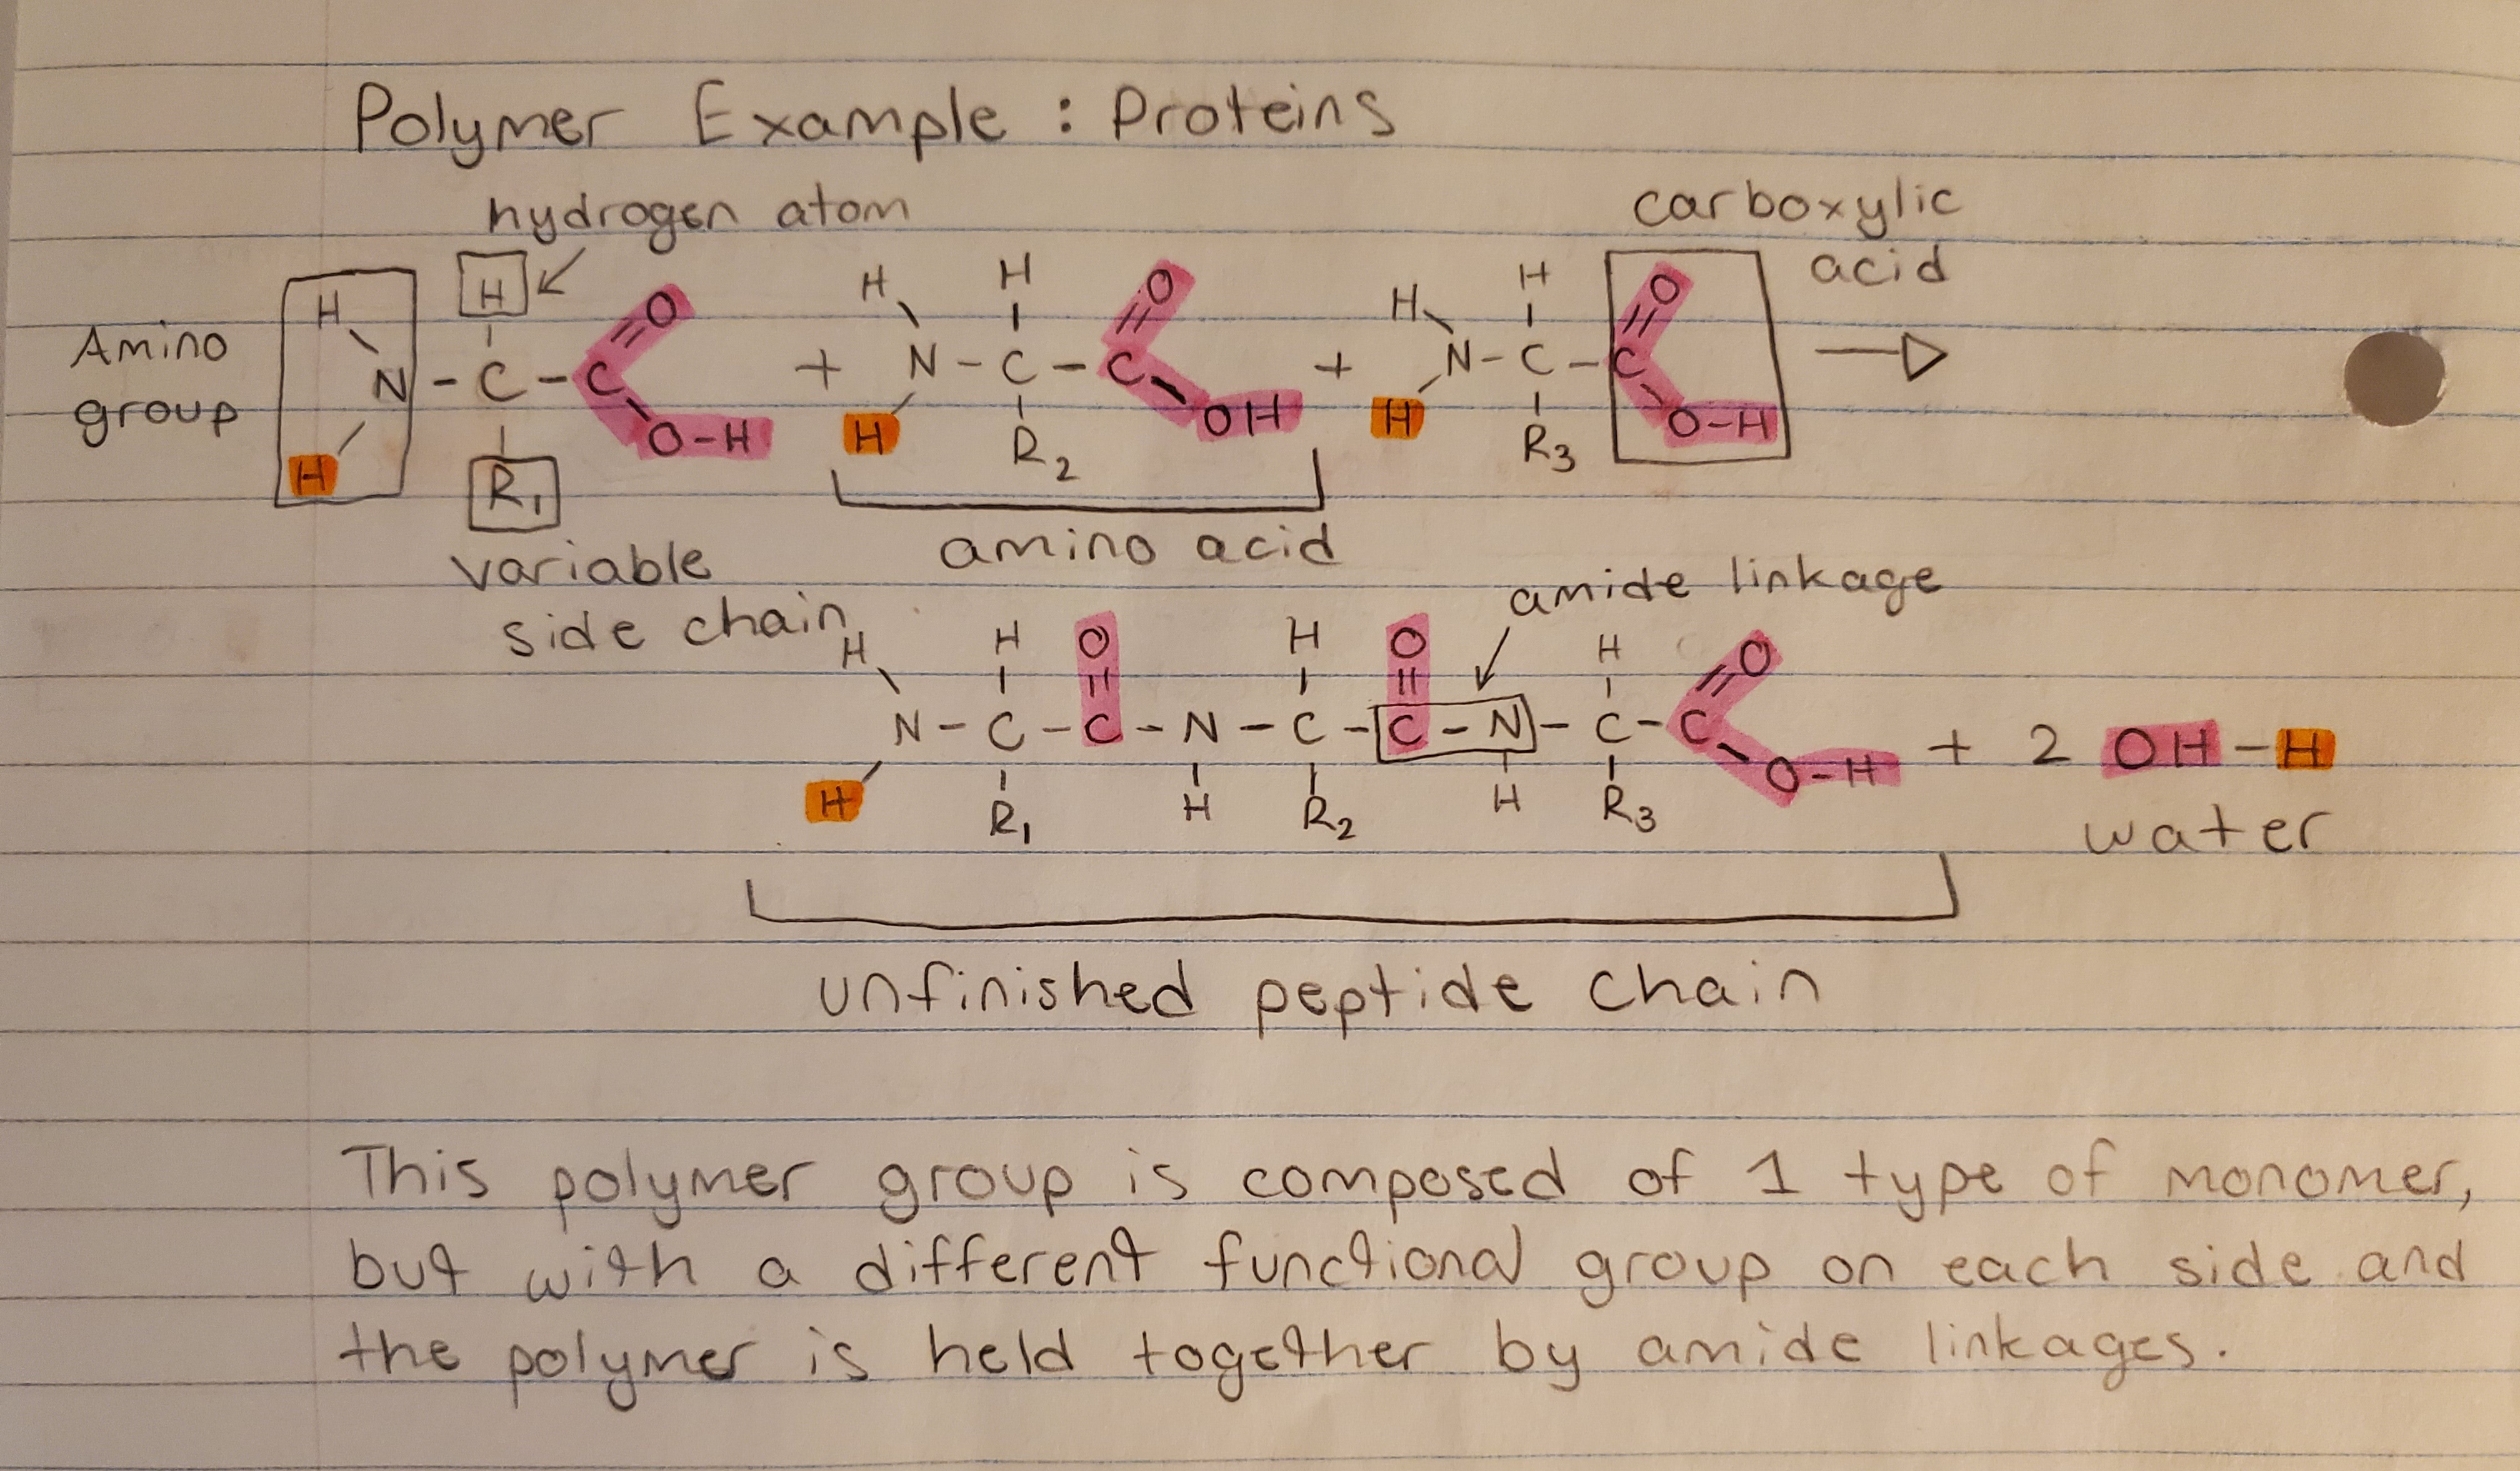 Polymer Example : Proteins
hydrogen atom
carboxylic
acid
Amino
group
H H O H H O H H O
N - C - C + N - C - C + N - C - C →
H R₁ O-H H R₂ OH H R₃ O-H
variable
side chain
amino acid
amide linkage
H H O H O H O
N - C - C - N - C - C - N - C - C + 2 OH - H
H R₁ H R₂ H R₃ O-H
water
unfinished peptide chain
This polymer group is composed of 1 type of monomer,
but with a different functional group on each side and
the polymer is held together by amide linkages.